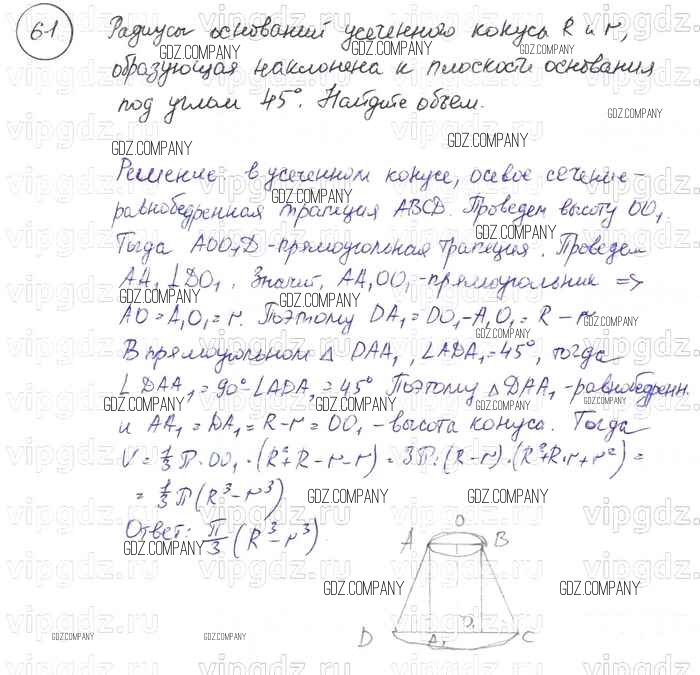 61
Радиусы оснований усеченного конуса R и r,
образующая наклонена к плоскости основания
под углом 45°. Найдите объем.
Решение: в усеченном конусе, осевое сечение –
равнобедренная трапеция ABCD. Проведем высоту OO₁.
Тогда AOO₁D – прямоугольная трапеция. Проведем
AA₁ ⊥ DO₁. Значит, AA₁OO₁ – прямоугольник =>
AO = A₁O₁ = r. Поэтому DA₁ = DO₁ – A₁O₁ = R – r
В прямоугольном △ DAA₁, ∠ADA₁ = 45°, тогда
∠DAA₁ = 90° – ∠ADA₁ = 45° Поэтому △DAA₁ – равнобедренн.
и AA₁ = DA₁ = R – r = OO₁ – высота конуса. Тогда
V = 1/3 π · OO₁ · (R² + R – r – r) = 3π · (R – r) · (R² + R·r + r²) =
= 1/3 π (R³ – r³)
Ответ: π/3 (R³ – r³)
O
A B
D A₁ O₁ C
GDZ.COMPANY
vipgdz.ru